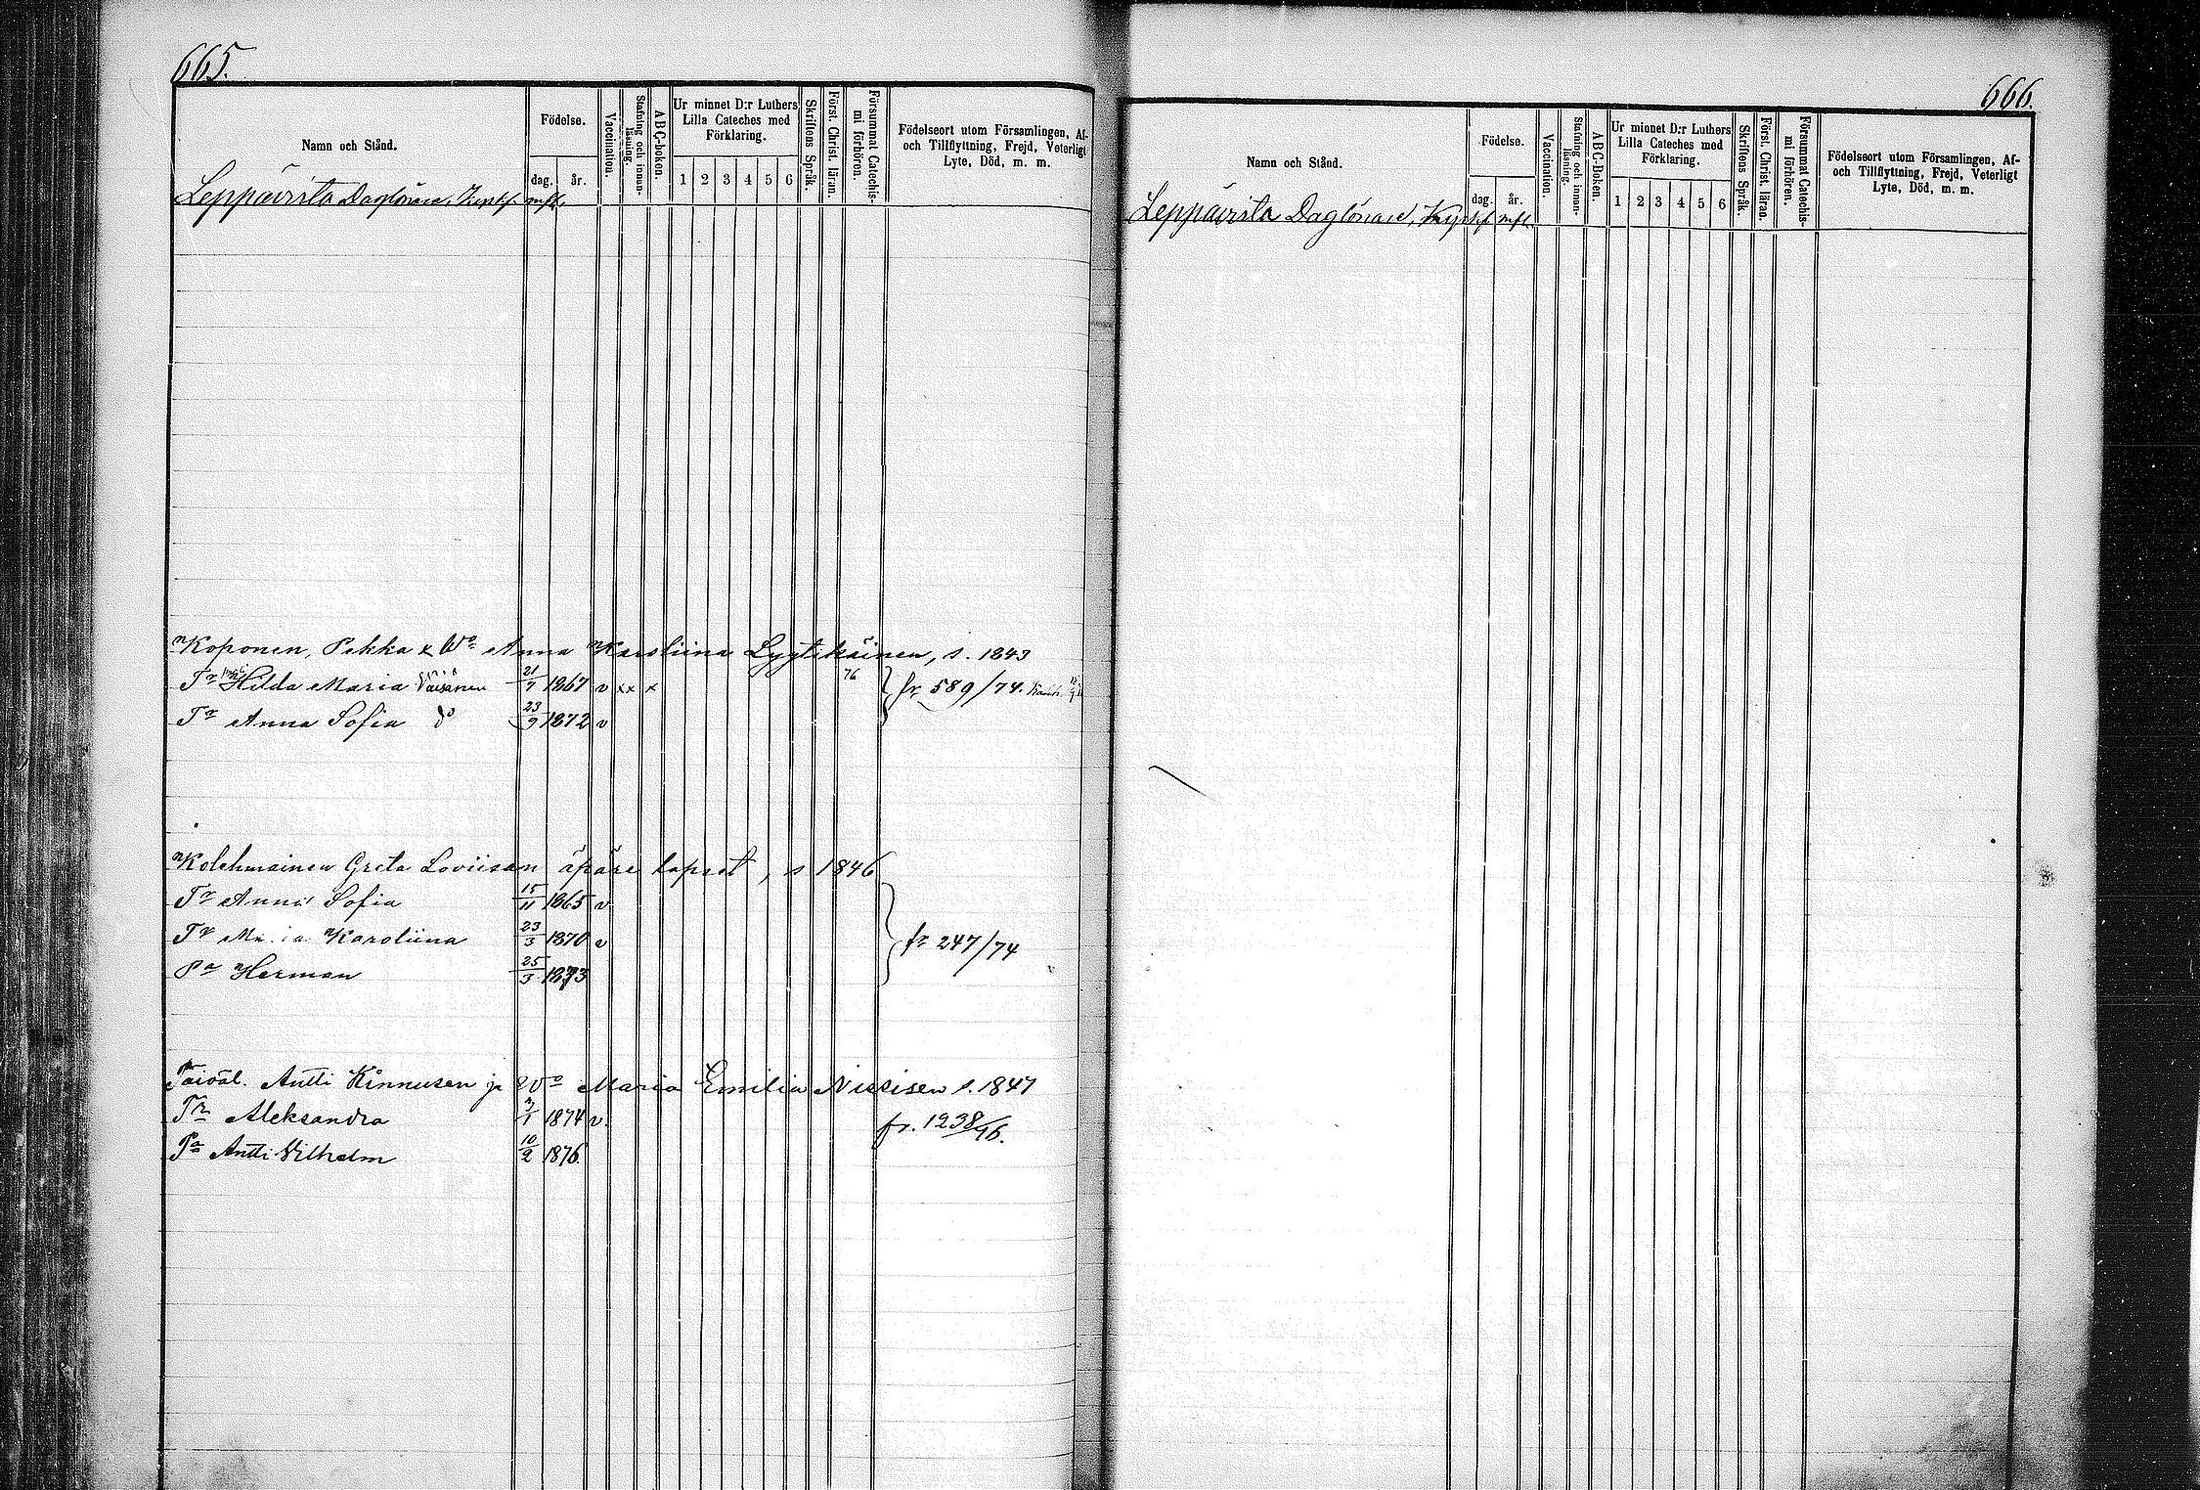 665.
Namn och Stånd.
Födelse.
dag. år.
Vaccination.
Stafning och innanläsning.
ABC-boken.
Ur minnet D:r Luthers
Lilla Cateches med
Förklaring.
1 2 3 4 5 6
Skriftens Språk.
Först. Christ. läran.
Försummat Catechismi förhören.
Födelseort utom Församlingen, Af-
och Tillflyttning, Frejd, Veterligt
Lyte, Död, m. m.
Leppävirta Daglönare,
Koponen, Pekka & Wo Anna Karoliina Lyytikäinen, s. 1843
Tr Hilda Maria Väisänen 21/7 1867 v xx x 76 fr. 589/74.
Tr Anna Sofia do 23/9 1872 v
Kolehmainen Greta Loviisan äpäre lapset, s 1846
Tr Anna Sofia 15/11 1865 v
Tr Maria Karoliina 23/3 1870 v fr 247/74
Pa Herman 25/3 1873
Päiväl. Antti Kinnusen ja Wo Maria Emilia Nissisen s. 1847
Tr Aleksandra 7/1 1874 v. fr. 1238/76.
Pa Antti Vilhelm 10/2 1876
666.
Namn och Stånd.
Födelse.
dag. år.
Vaccination.
Stafning och innanläsning.
ABC-Boken.
Ur minnet D:r Luthers
Lilla Cateches med
Förklaring.
1 2 3 4 5 6
Skriftens Språk.
Först. Christ. läran.
Försummat Catechismi förhören.
Födelseort utom Församlingen, Af-
och Tillflyttning, Frejd, Veterligt
Lyte, Död, m. m.
Leppävirta Daglönare,